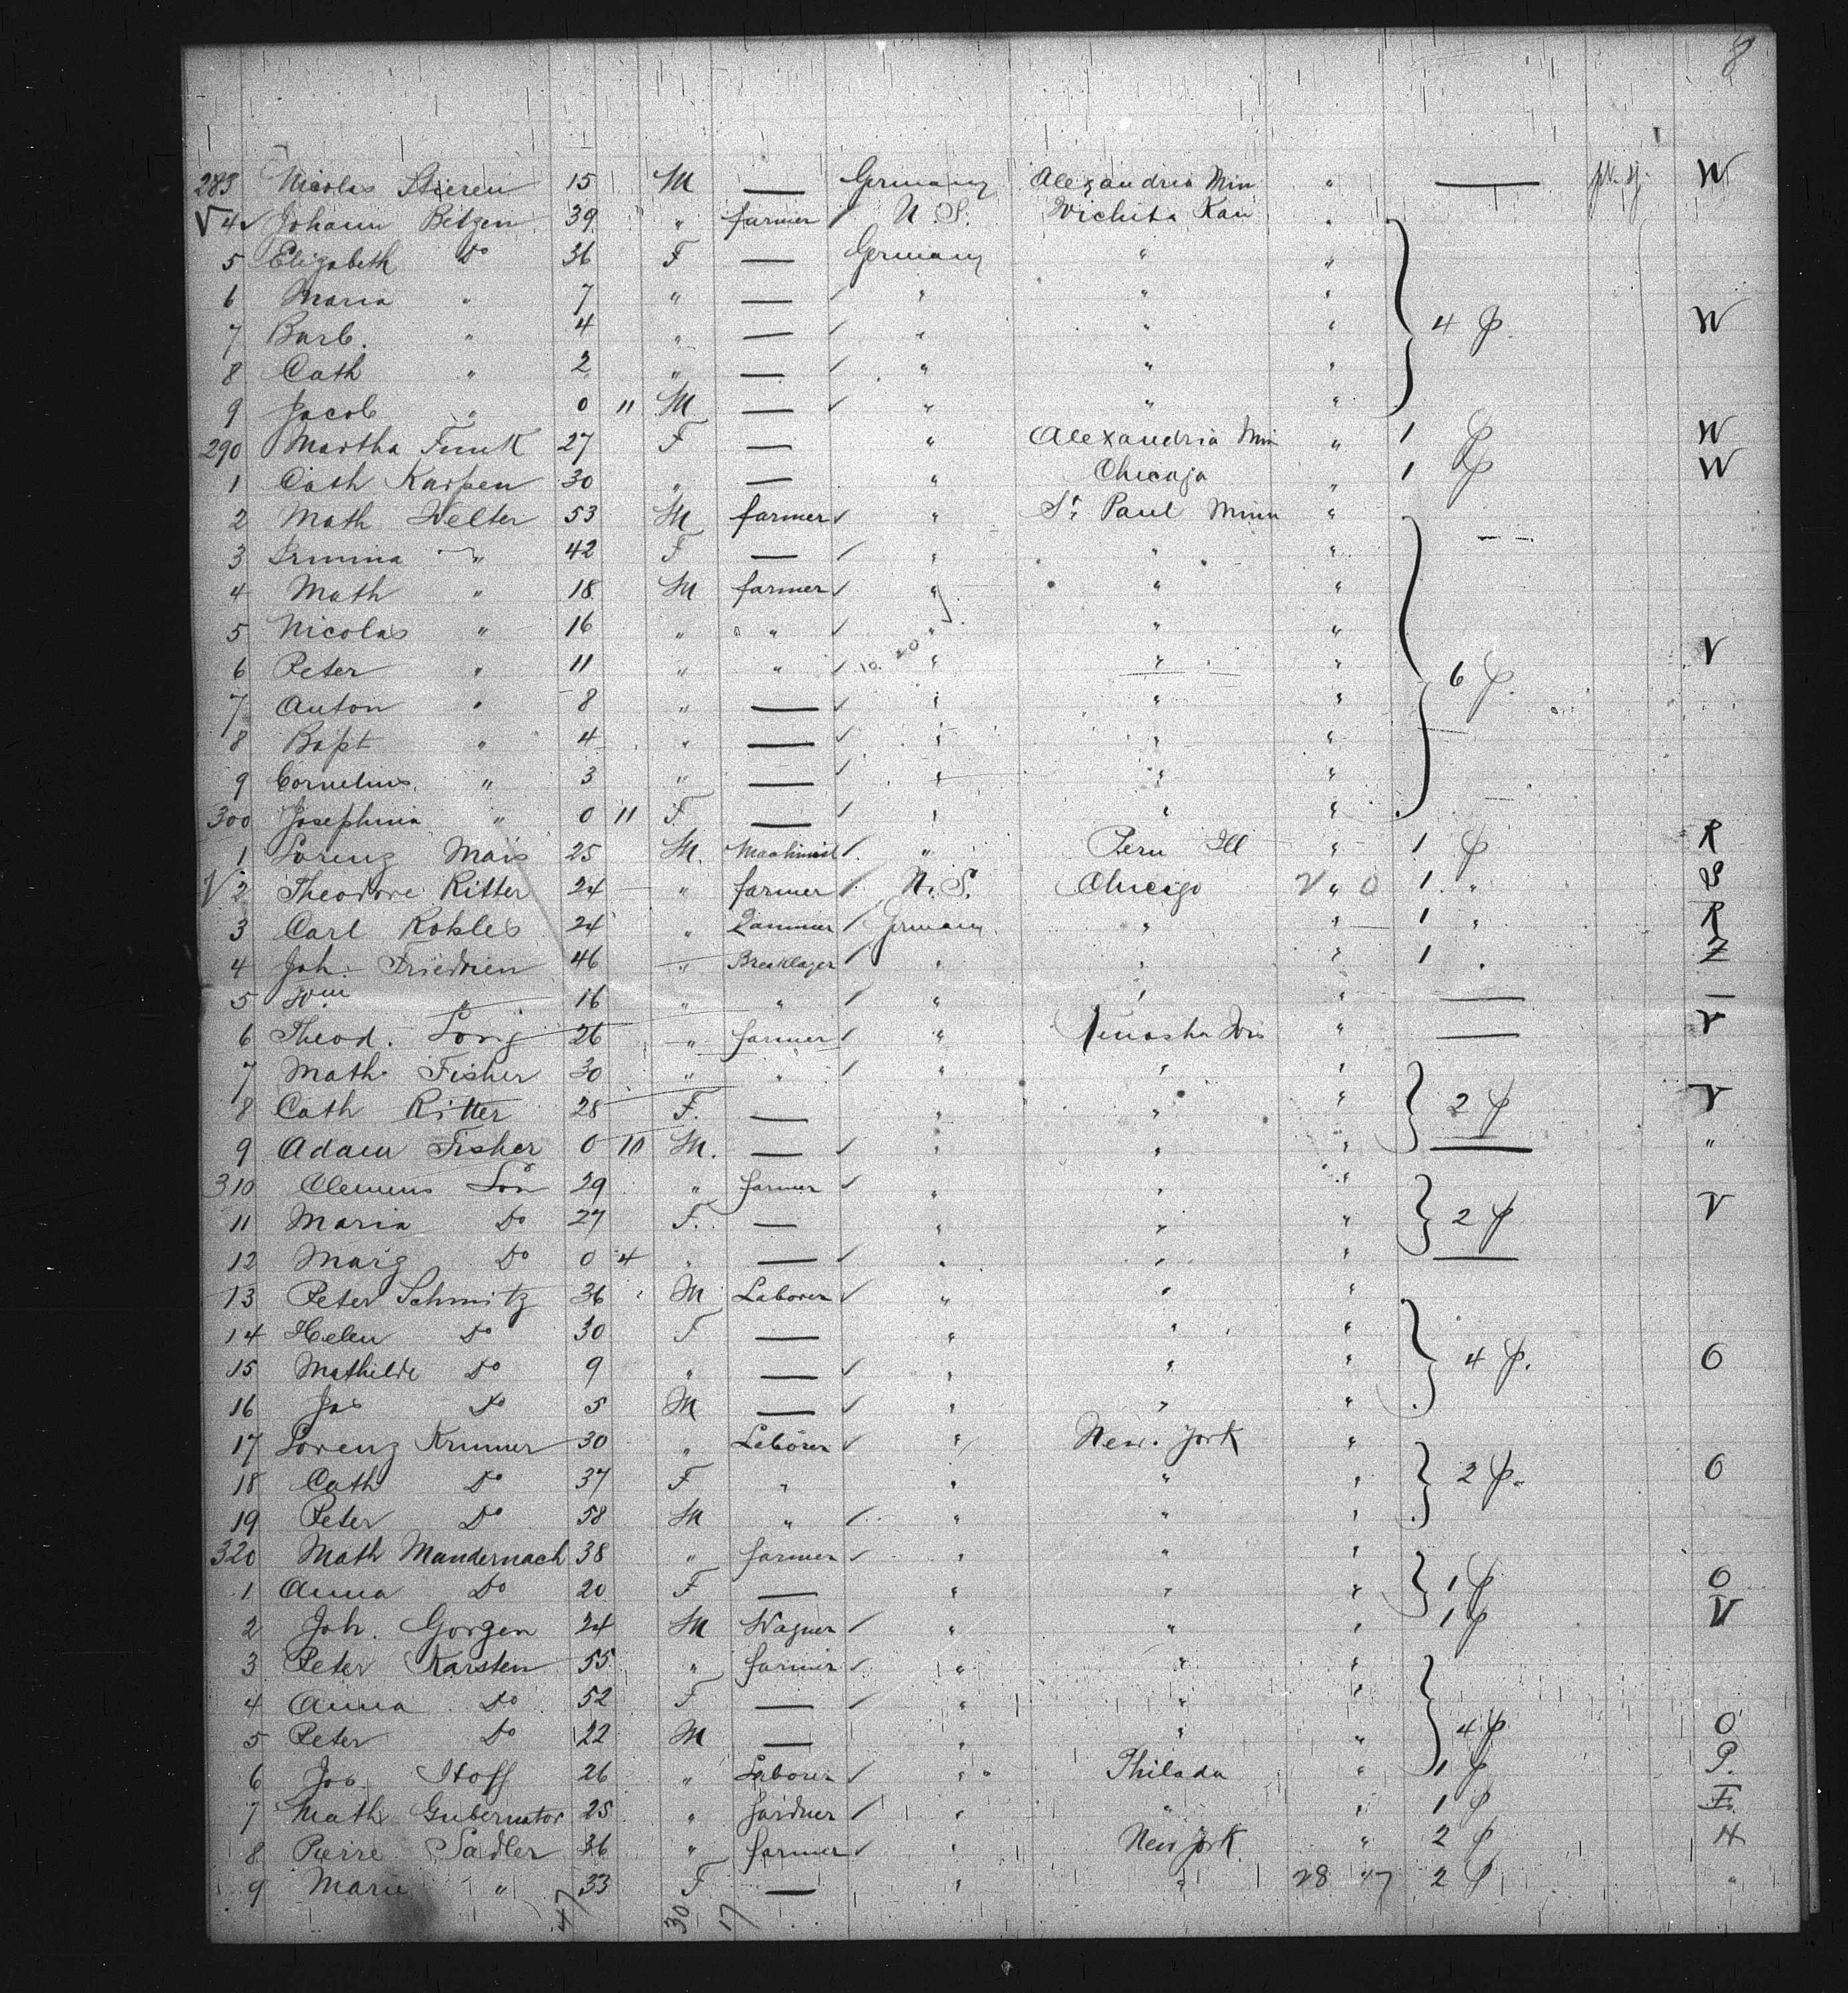 8
283 Nicolas Stieren 15 M — Germany Alexandria Min " — W
√ 4 Johann Betzen 39 " farmer U. S. Wichita Kan "
5 Elizabeth Do 36 F — Germany " "
6 Maria " 7 " — " " "
7 Barb. " 4 " — " " " 4 p. W
8 Cath " 2 " — " " "
9 Jacob " 0 11 M — " " "
290 Martha Funk 27 F — " Alexandria Min " 1 p W
1 Cath Karpen 30 " — " Chicago " 1 p W
2 Math Welter 53 M farmer " St Paul Minn "
3 Irmina " 42 F — " " "
4 Math " 18 M farmer " " "
5 Nicolas " 16 " " " " "
6 Peter " 11 " " " " " 6 p. V
7 Anton " 8 " — " " "
8 Bapt " 4 " — " " "
9 Cornelius " 3 " — " " "
300 Josephina " 0 11 F — " " "
1 Lorenz Mais 25 M. Machinist " Peru Ill " 1 p R
√ 2 Theodore Ritter 24 " farmer U. S. Chicago " 1 " S
3 Carl Kohles 24 " Germany " " 1 " R
4 Joh. Friedrien 46 " Breaklayer " " " 1 " Z
5 Wm " 16 " " " " " — —
6 Theod. Long 26 " farmer " Menasha Wis " — V
7 Math. Fisher 30 " " " " "
8 Cath Ritter 28 F. — " " " 2 p V
9 Adam Fisher 0 10 M. — " " " "
310 Clemens Lon 29 " farmer " " "
11 Maria Do 27 F. — " " " 2 p V
12 Marg Do 0 4 " — " " "
13 Peter Schmitz 36 M Laborer " " "
14 Helen Do 30 F — " " "
15 Mathilde Do 9 " — " " " 4 p. O
16 Jos Do 5 M — " " "
17 Lorenz Krumer 30 " Laborer " New. York "
18 Cath Do 37 F " " " " 2 p. O
19 Peter Do 58 M " " " "
320 Math Mandernach 38 " farmer " " "
1 Anna Do 20 F — " " " 1 p O
2 Joh. Gorgen 24 M Wagner " " " 1 p V
3 Peter Karsten 55 " farmer " " "
4 Anna Do 52 F — " " "
5 Peter Do 22 M — " " " 4 p O
6 Jos Hoff 26 " Laborer " Philada " 1 p P.
7 Math Gubernator 25 " Gardner " " " 1 p F.
8 Pierre Sadler 36 " farmer " New York " 2 p H
9 Marie " 33 F — " " 28 47 2 p "
47 30 17